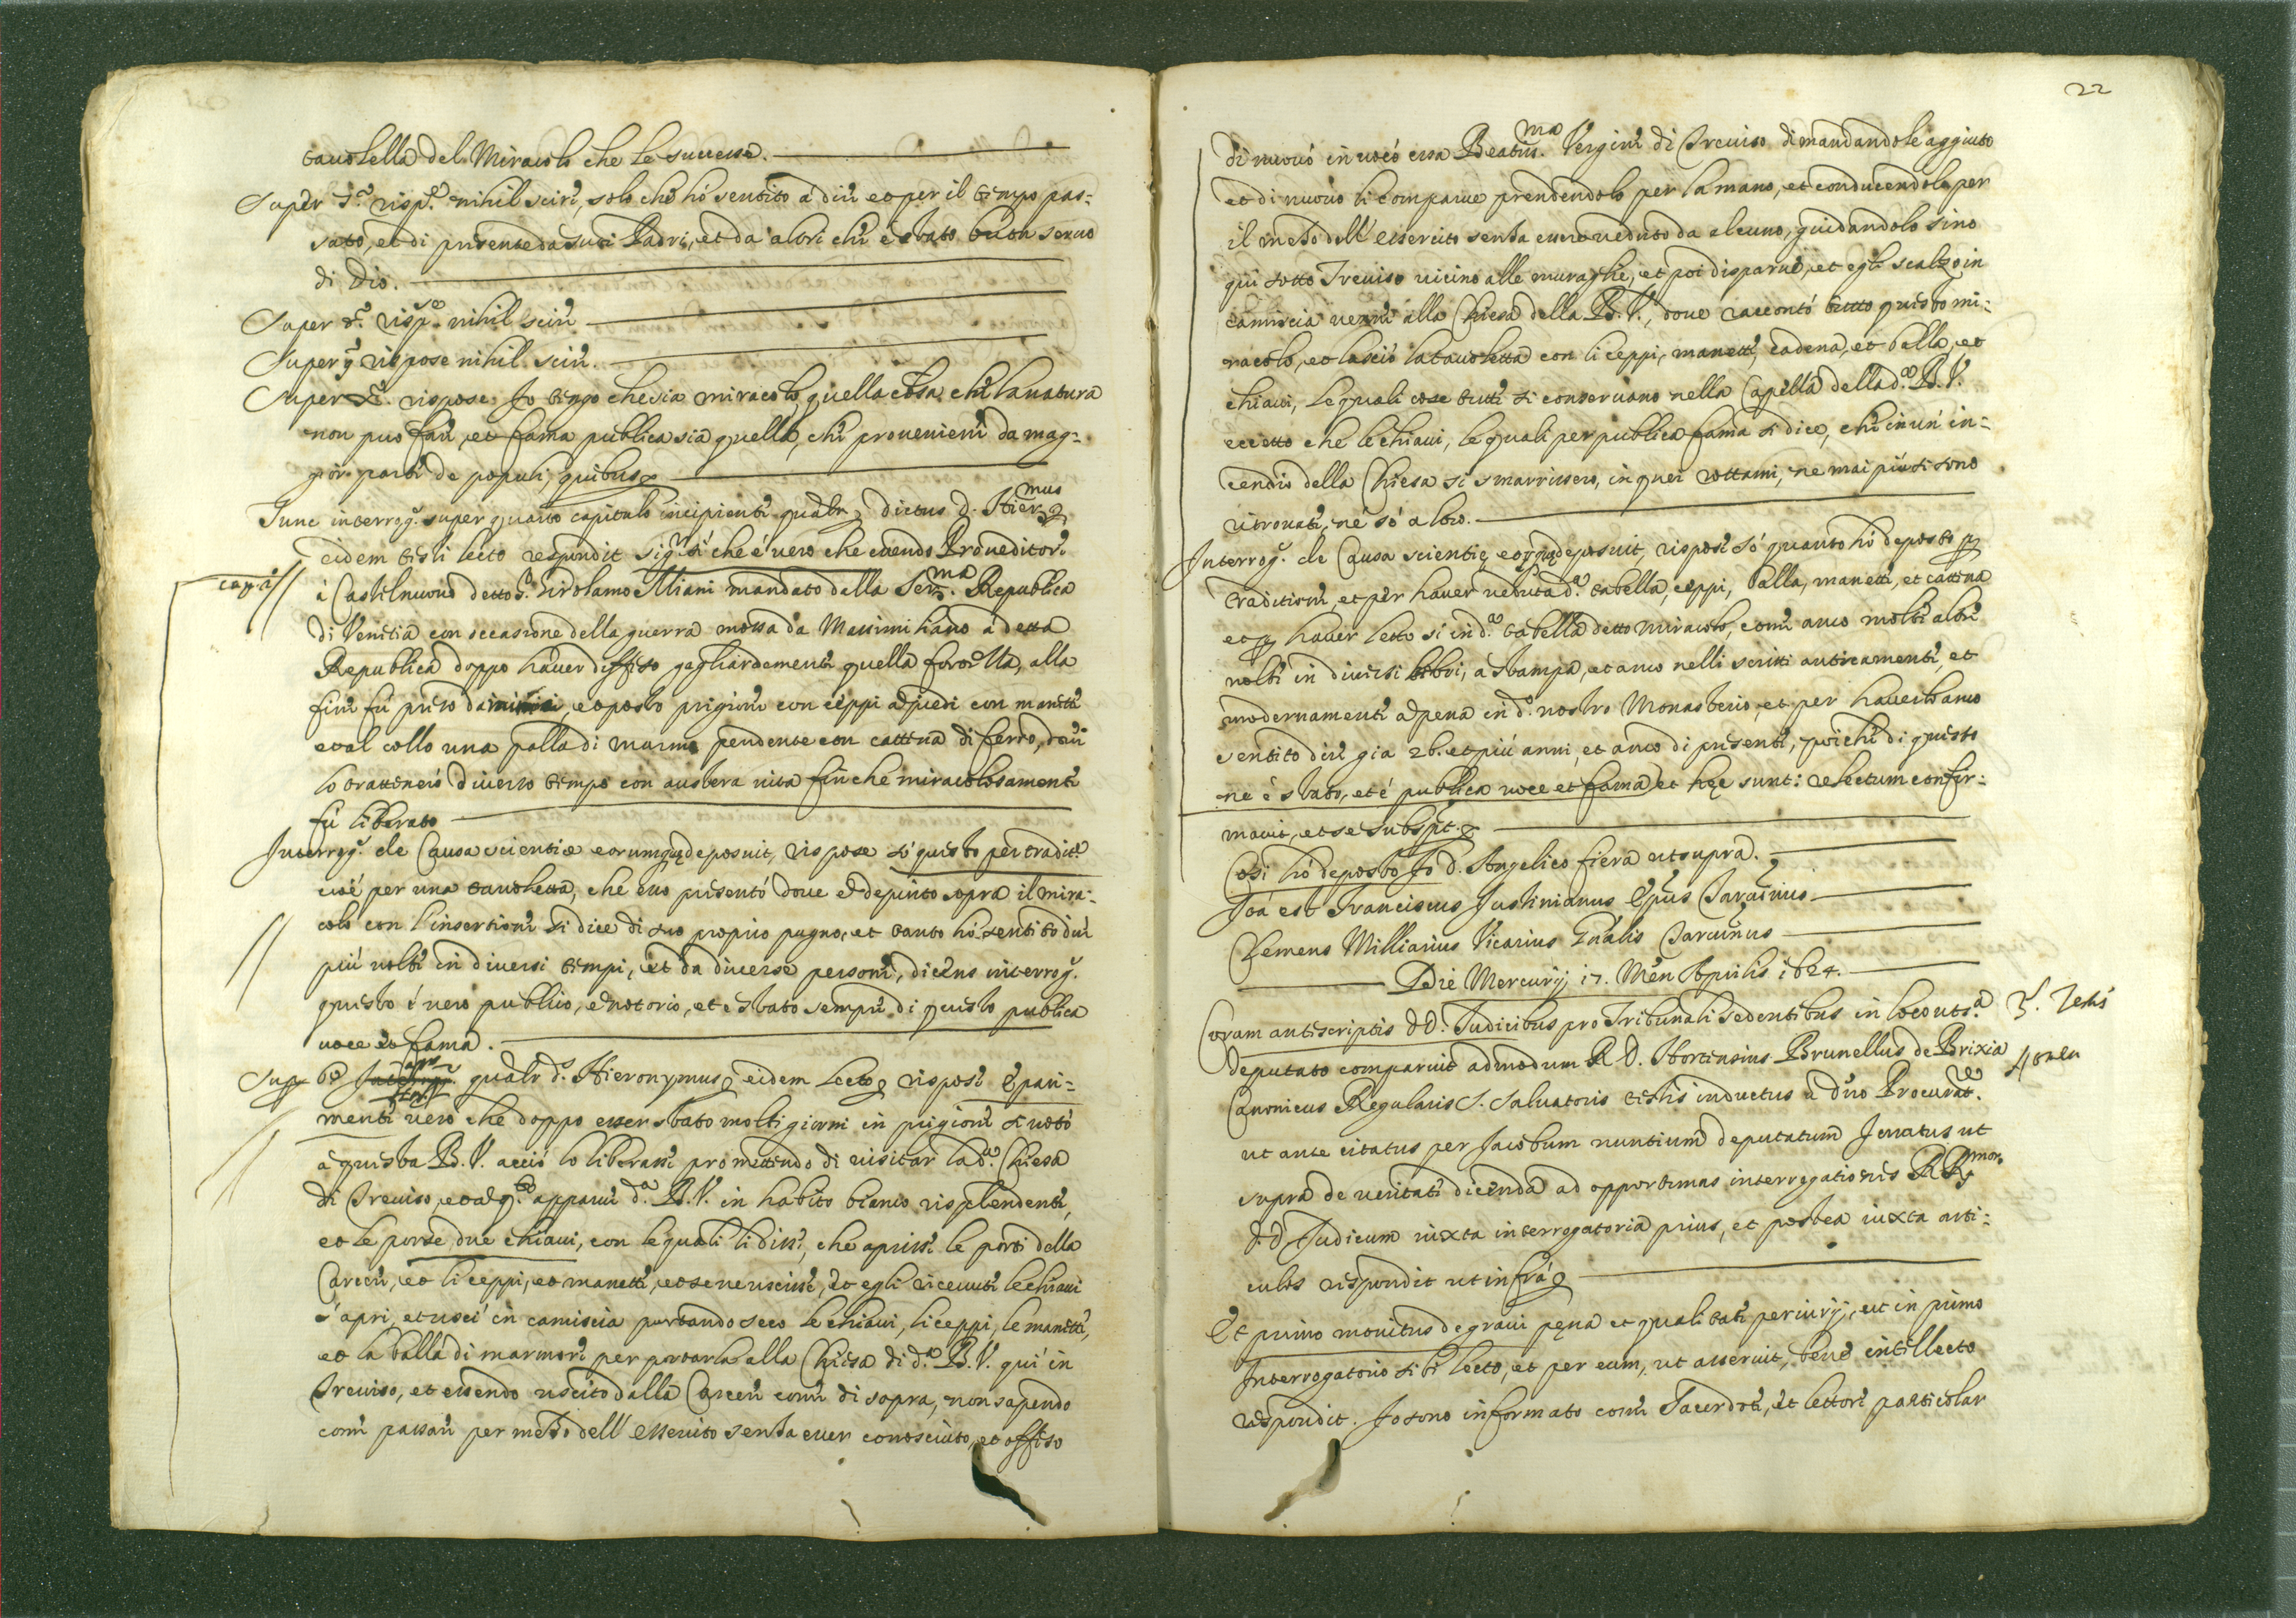 tavolella del Miracolo che le successe.
Super 7.º risp.º nihil scire, solo che hò sentito à dire et per il tempo pas:
sato, et di presente da suoi Padri, et da altri che è stato buon servo
di Dio.
Super 8.º risp.se nihil scire
Super 9 rispose nihil scire.
Super X.º rispose Io tengo che sia miracolo quella cosa che la natura
non puo fare, et fama publica sia quella, che proveniene da mag:
gior parte de populi, quibus
Tunc interrog.s super quarto capitulo incipiente qualr dictus d. Hier.mus
eidem testi lecto respondit sig.r sì che é vero che essendo Proveditore
cap. 4
à Castelnuovo detto S.r Girolamo Miani mandato dalla Ser.ma Republica
di Venetia con occasione della guerra mossa da Massimiliano à detta
Republica doppo haver diffeso gagliardamente quella fortezza, alla
fine fù preso da nimici, et posto prigione con ceppi à piedi con manette
et al collo una palla di marmo pendente con cattena di ferro, dove
lo trattenero diverso tempo con austera vita fin che miracolosamente
fù liberato
Interrog.s de Causa scientiæ eorumque deposuit, rispose sò questo per tradit.e
cioé per una tavoletta, che esso presentó dove è depinto sopra il mira:
colo con l'insertione si dice di suo proprio pugno, et tanto hó sentito dire
più volte in diversi tempi, et da diverse persone, dicens interrog.s
questo é vero publico, et notorio, et è stato sempre di questo publica
voce et fama.
Sup 5.º qualr d.s Hieronymus eidem lecto rispose È pari:
mente vero che doppo esser stato molti giorni in prigione si votò
à questa B. V. acció lo liberasse promettendo di visitar la d.a Chiesa
di Treviso, et al q.to apparve d.a B. V. in habito bianco risplendente,
et le porse due chiavi, con le quali li disse, che aprisse le porte della
Carcere, et li ceppi, et manette, et se ne uscisse, et egli ricevute le chiavi
s'apri, et uscì in camiscia portando seco le chiavi, li ceppi, le manette,
et la balla di marmore per portarla alla Chiesa di d.a B. V. quì in
Treviso, et essendo uscito dalla Carcere come di sopra, non sapendo
come passare per mezo dell'essercito senza esser conosciuto, et offeso
22
di nuovó invocó essa Beatis.ma Vergine di Treviso dimandandole aggiuto
et di nuovo li comparve prendendolo per la mano, et conducendolo per
il mezo dell'essercito senza esser veduto da alcuno, guidandolo sino
qui sotto Treviso vicino alle muraglie, et poi disparve, et egli scalzo in
camiscia venne alla Chiesa della B. V., dove raccontó tutto questo mi:
racolo, et lasció la tavoletta con li ceppi, manette, cadena, et balla, et
chiavi, le quali cose tutte si conservano nella Capella della d.a B. V.
eccetto che le chiavi, le quali per publica fama si dice, che in un' in:
cendio della Chiesa si smarrissero, in quei rottami, ne mai più si sono
ritrovate, né só altro.
Interrog.s de Causa scientię eorumque deposuit, rispose só quanto hó deposto p
traditione, et per haver veduta d.a tabella, ceppi, balla, manette, et cattena
et p haver letto sì in d.a tabella detto miracolo, come anco molte altre
volte in diversi libri, à stampa, et anco nelli scritti anticamente, et
modernamente à pena in d.o nostro Monasterio, et per haverlo anco
sentito dire gia 26. et più anni, et anco di presente, poiche di questo
ne è stato, et é publica voce et fama et hęc sunt: relectum confir:
mavit, et se subspt.
Così hó deposto Io d. Angelico fiera ut supra.
Ita est Franciscus Justinianus Epus Tarvisinus
Clemens Milliarius Vicarius Gnalis Tarvisinus
Die Mercurij 17. Men Aprilis 1624.
Coram antescriptis DD. Judicibus pro Tribunali sedentibus in loco ut s.a
3.s Testis
deputato comparuit admodum R. D. Hortensius Brunellus de Brixia
Canonicus Regularis S. Salvatoris testis inductus à dno Procurat.re
ut ante citatus per Jacobum nuntium deputatum Juratus ut
supra de veritate dicenda ad opportunas interrogationes RR.mor
D. D. Judicum iuxta interrogatoria prius, et postea iuxta arti:
culos respondit ut infrà
Et primo monitus de gravi pęna et qualitate periurij, et in primo
Interrogatorio sibi lecto, et per eum, ut asseruit, bene intellecto
respondit. Io sono informato come Sacerdote, et lettore particolar